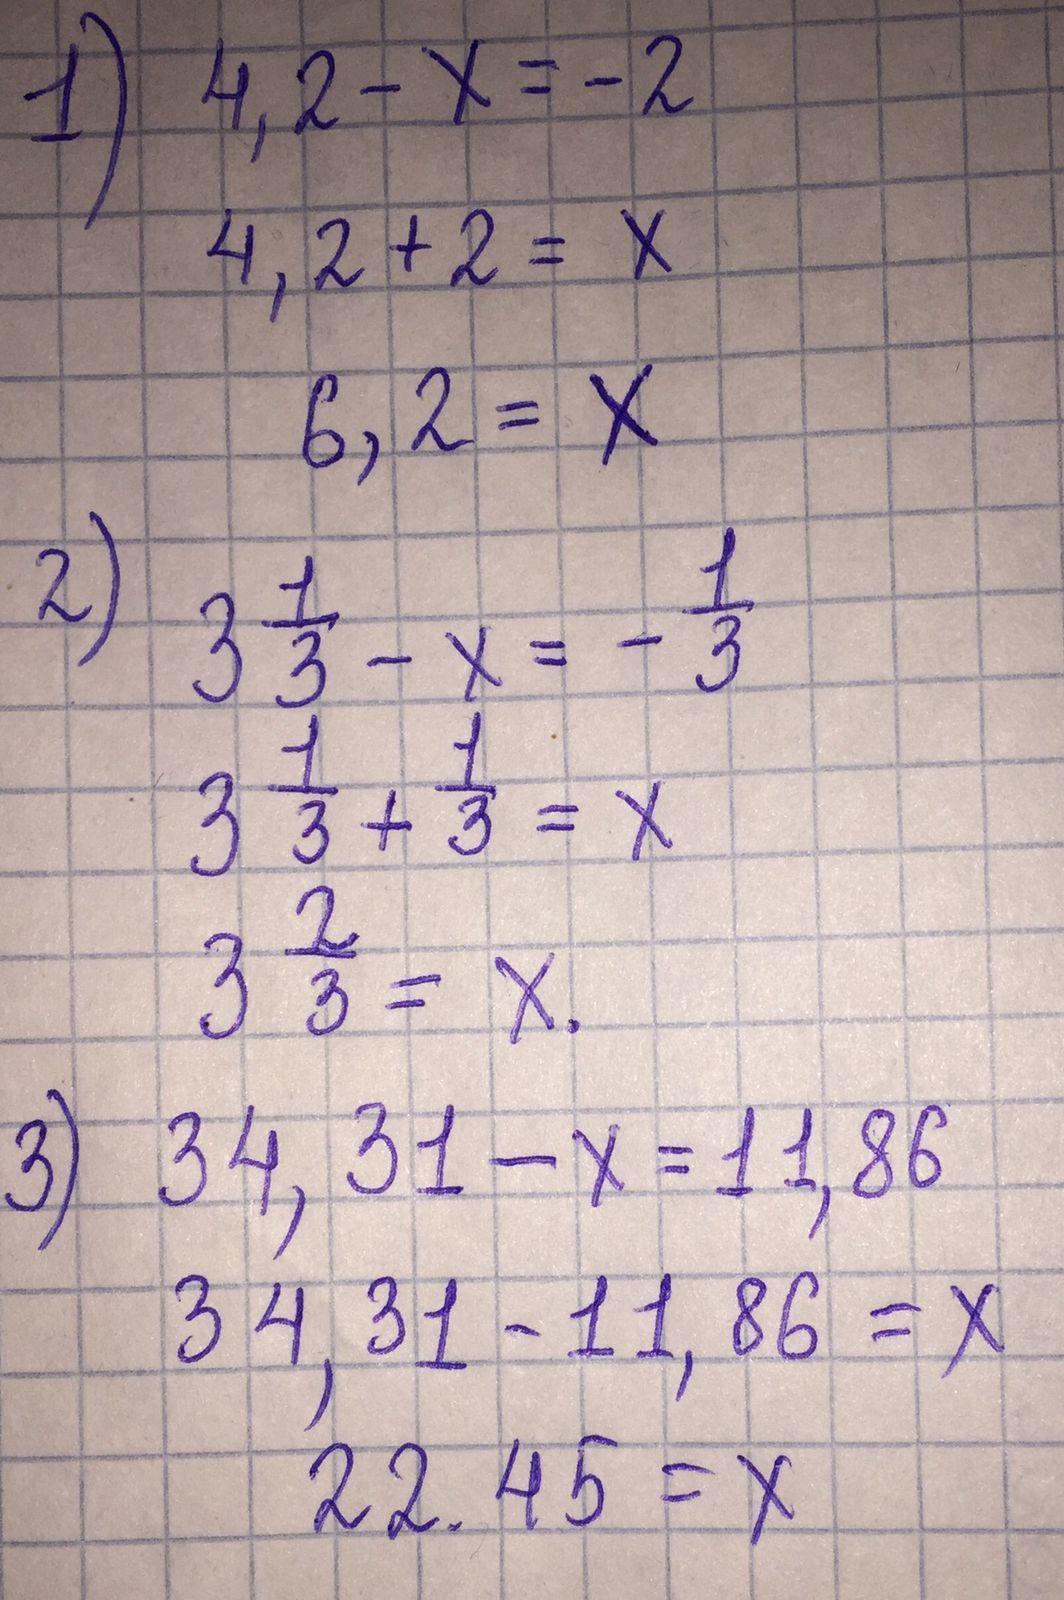 1) 4,2 - x = -2
4,2 + 2 = x
6,2 = x
2) 3 1/3 - x = - 1/3
3 1/3 + 1/3 = x
3 2/3 = x.
3) 34,31 - x = 11,86
34,31 - 11,86 = x
22.45 = x